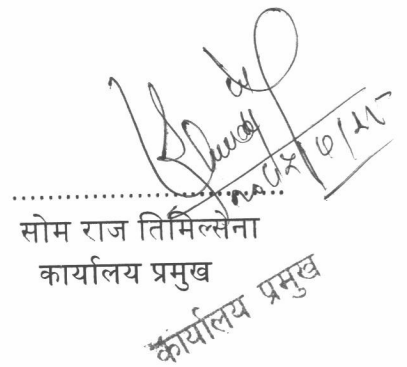 .................................
सोम राज तिमिल्सेना
कार्यालय प्रमुख
कार्यालय प्रमुख